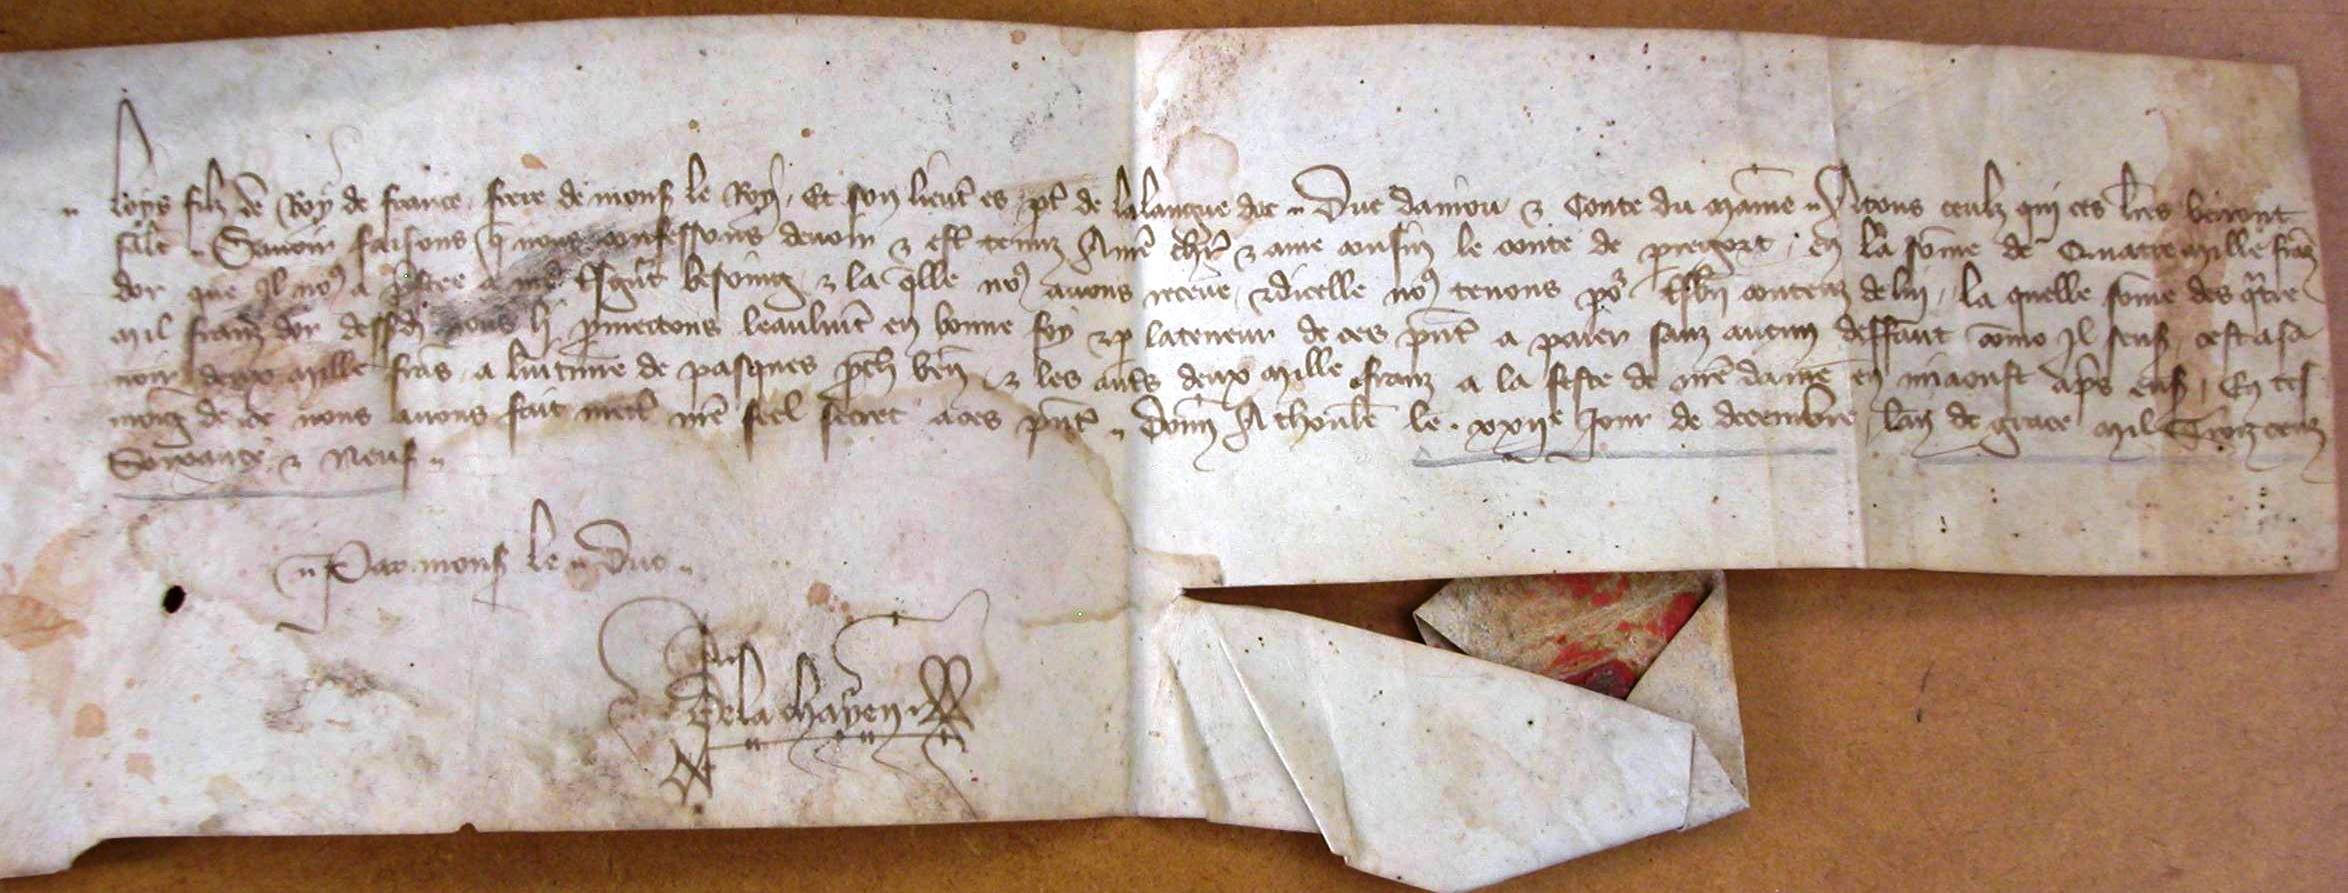 Loys filz de Roy de france frere de mons le Roy Et son lieut es pt de lalangue doc Duc daniou & Conte du maine A tous ceulz qui ces lres verront
salt Savoir faisons q nous confessons devoir & est tenuz A nre chr & ame cousin le conte de pieregort en la some de Quatre mille frans
dor que Il nos a prestee a nre besoing & la qlle nos avons receue & dicelle nos tenons por bn contenz de lui la quelle some des qtre
mil franz dor dessd nous li prometons leaulmt en bonne foy & p lateneur de ces pnt a paier sanz aucun deffaut come Il sens cestasa
voir deux mille frans a luitime de pasques proch ven & les auts deux mille franz a la feste de nre dame en miaoust aps ens En tes
moing de ce nous avons fait mectre nre seel secret a ces pnt Donn A thoulse le xxiie Jour de decembre lan de grace mil Trois cenz
Soixante & Neuf
Par mons le Duc
De la chayen